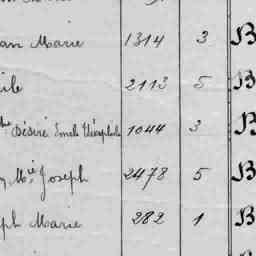 an Marie 1314 3 B
ile 2113 5 B
Désiré Emile Théophile 1044 3 B
Mie Joseph 2478 5 B
ph Marie 282 1 B